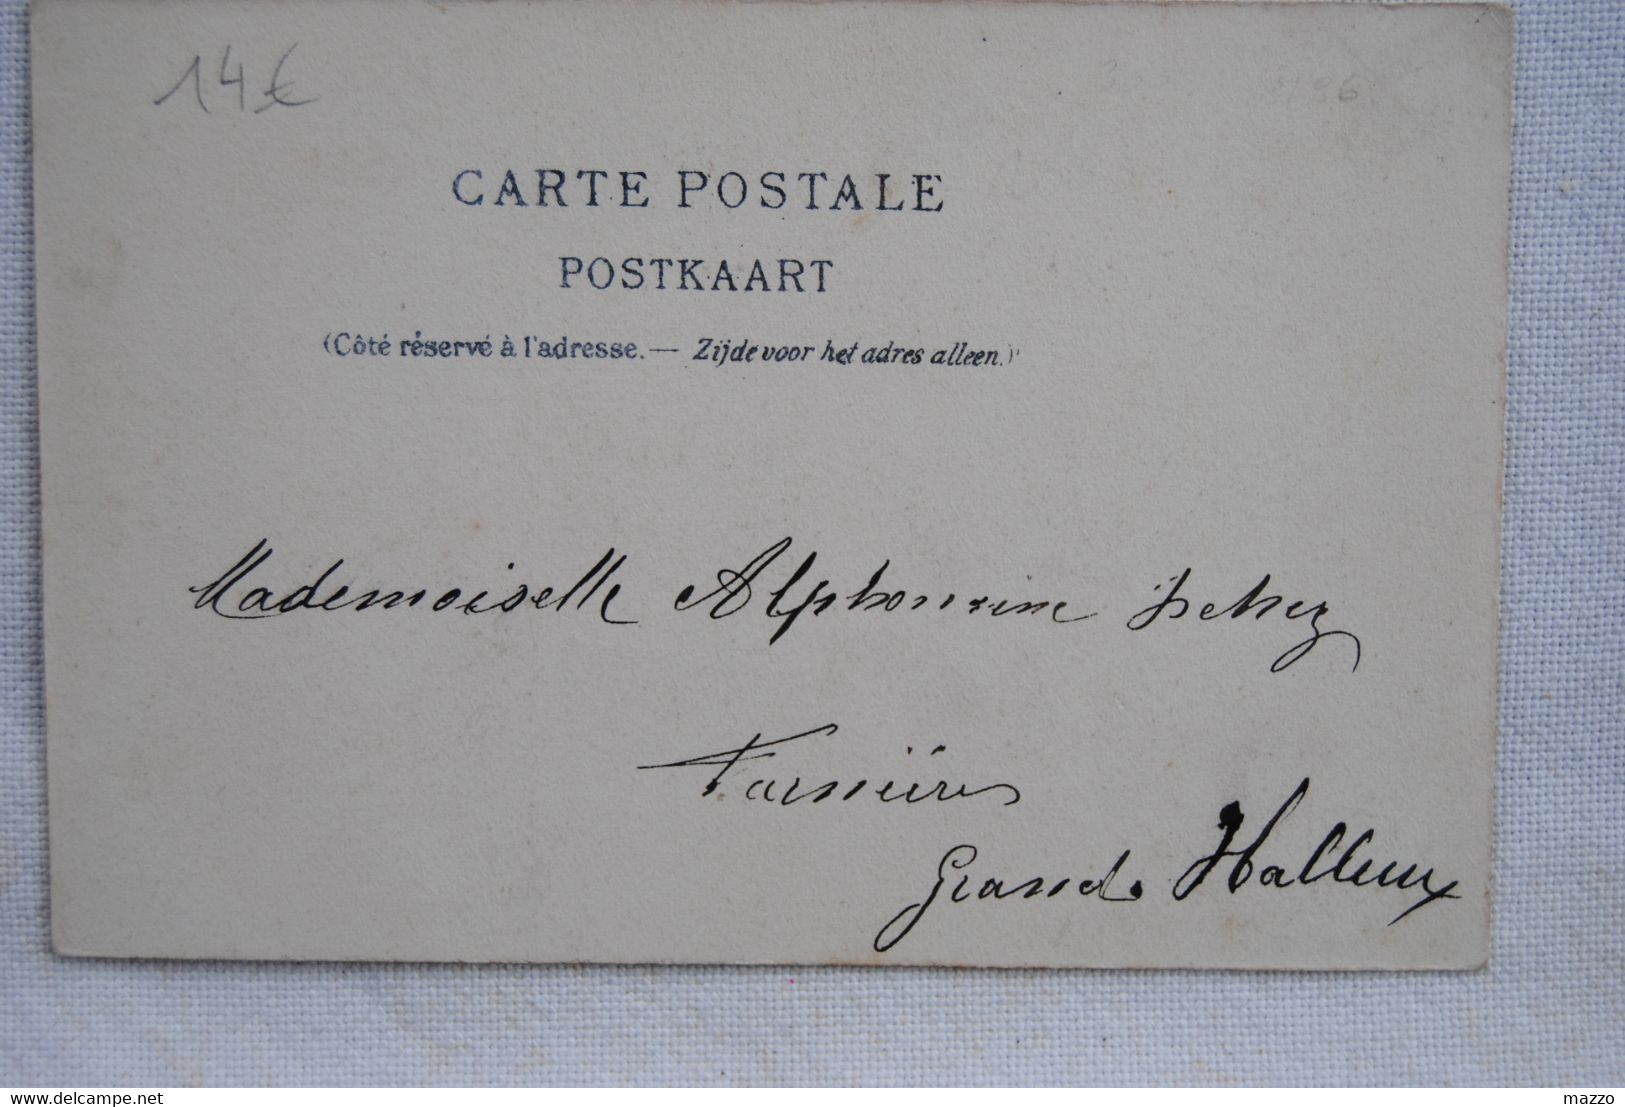 14€
CARTE POSTALE
POSTKAART
(Côté réservé à l'adresse. — Zijde voor het adres alleen.)
Mademoiselle Alphonsine
Farnières
Grand. Halleux
www.delcampe.net
mazzo